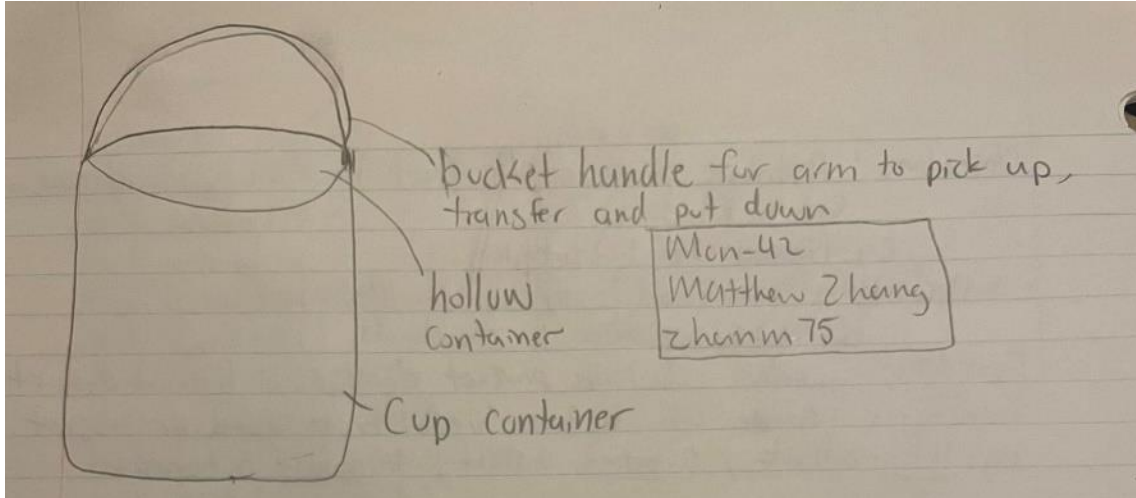 bucket handle for arm to pick up,
transfer and put down
Mon-42
Matthew Zhang
zhanm75
hollow
container
Cup container